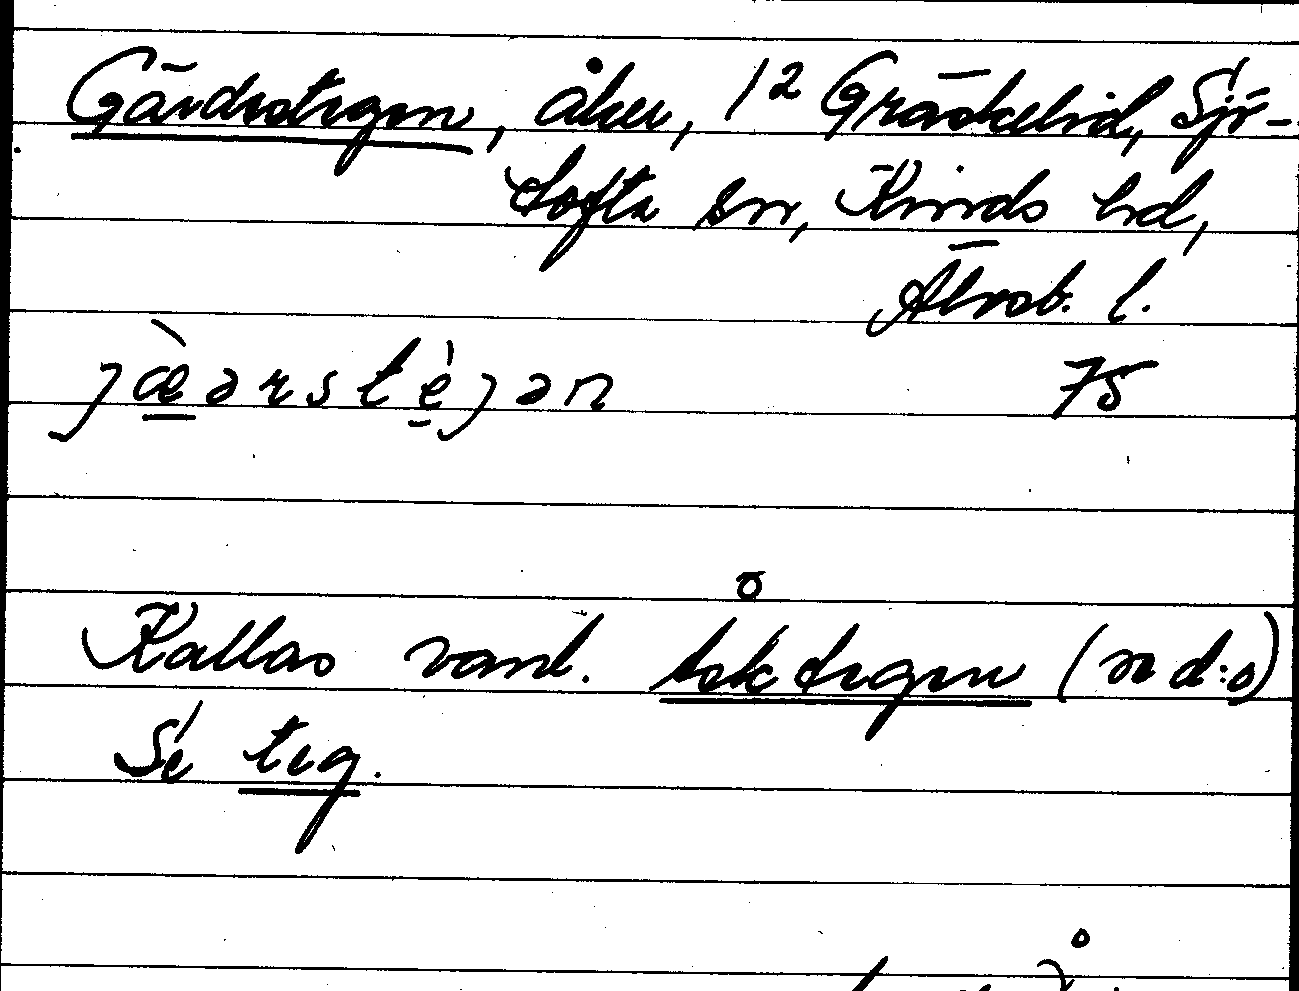 Gärdstegen, åker, 1² Gräskelid, Sjö-
tofta sn, Kinds hd,
Älvsb. l.
jæ̀ərstèjən 75
Kallas vanl. tegen (se d:o)
Se teg.